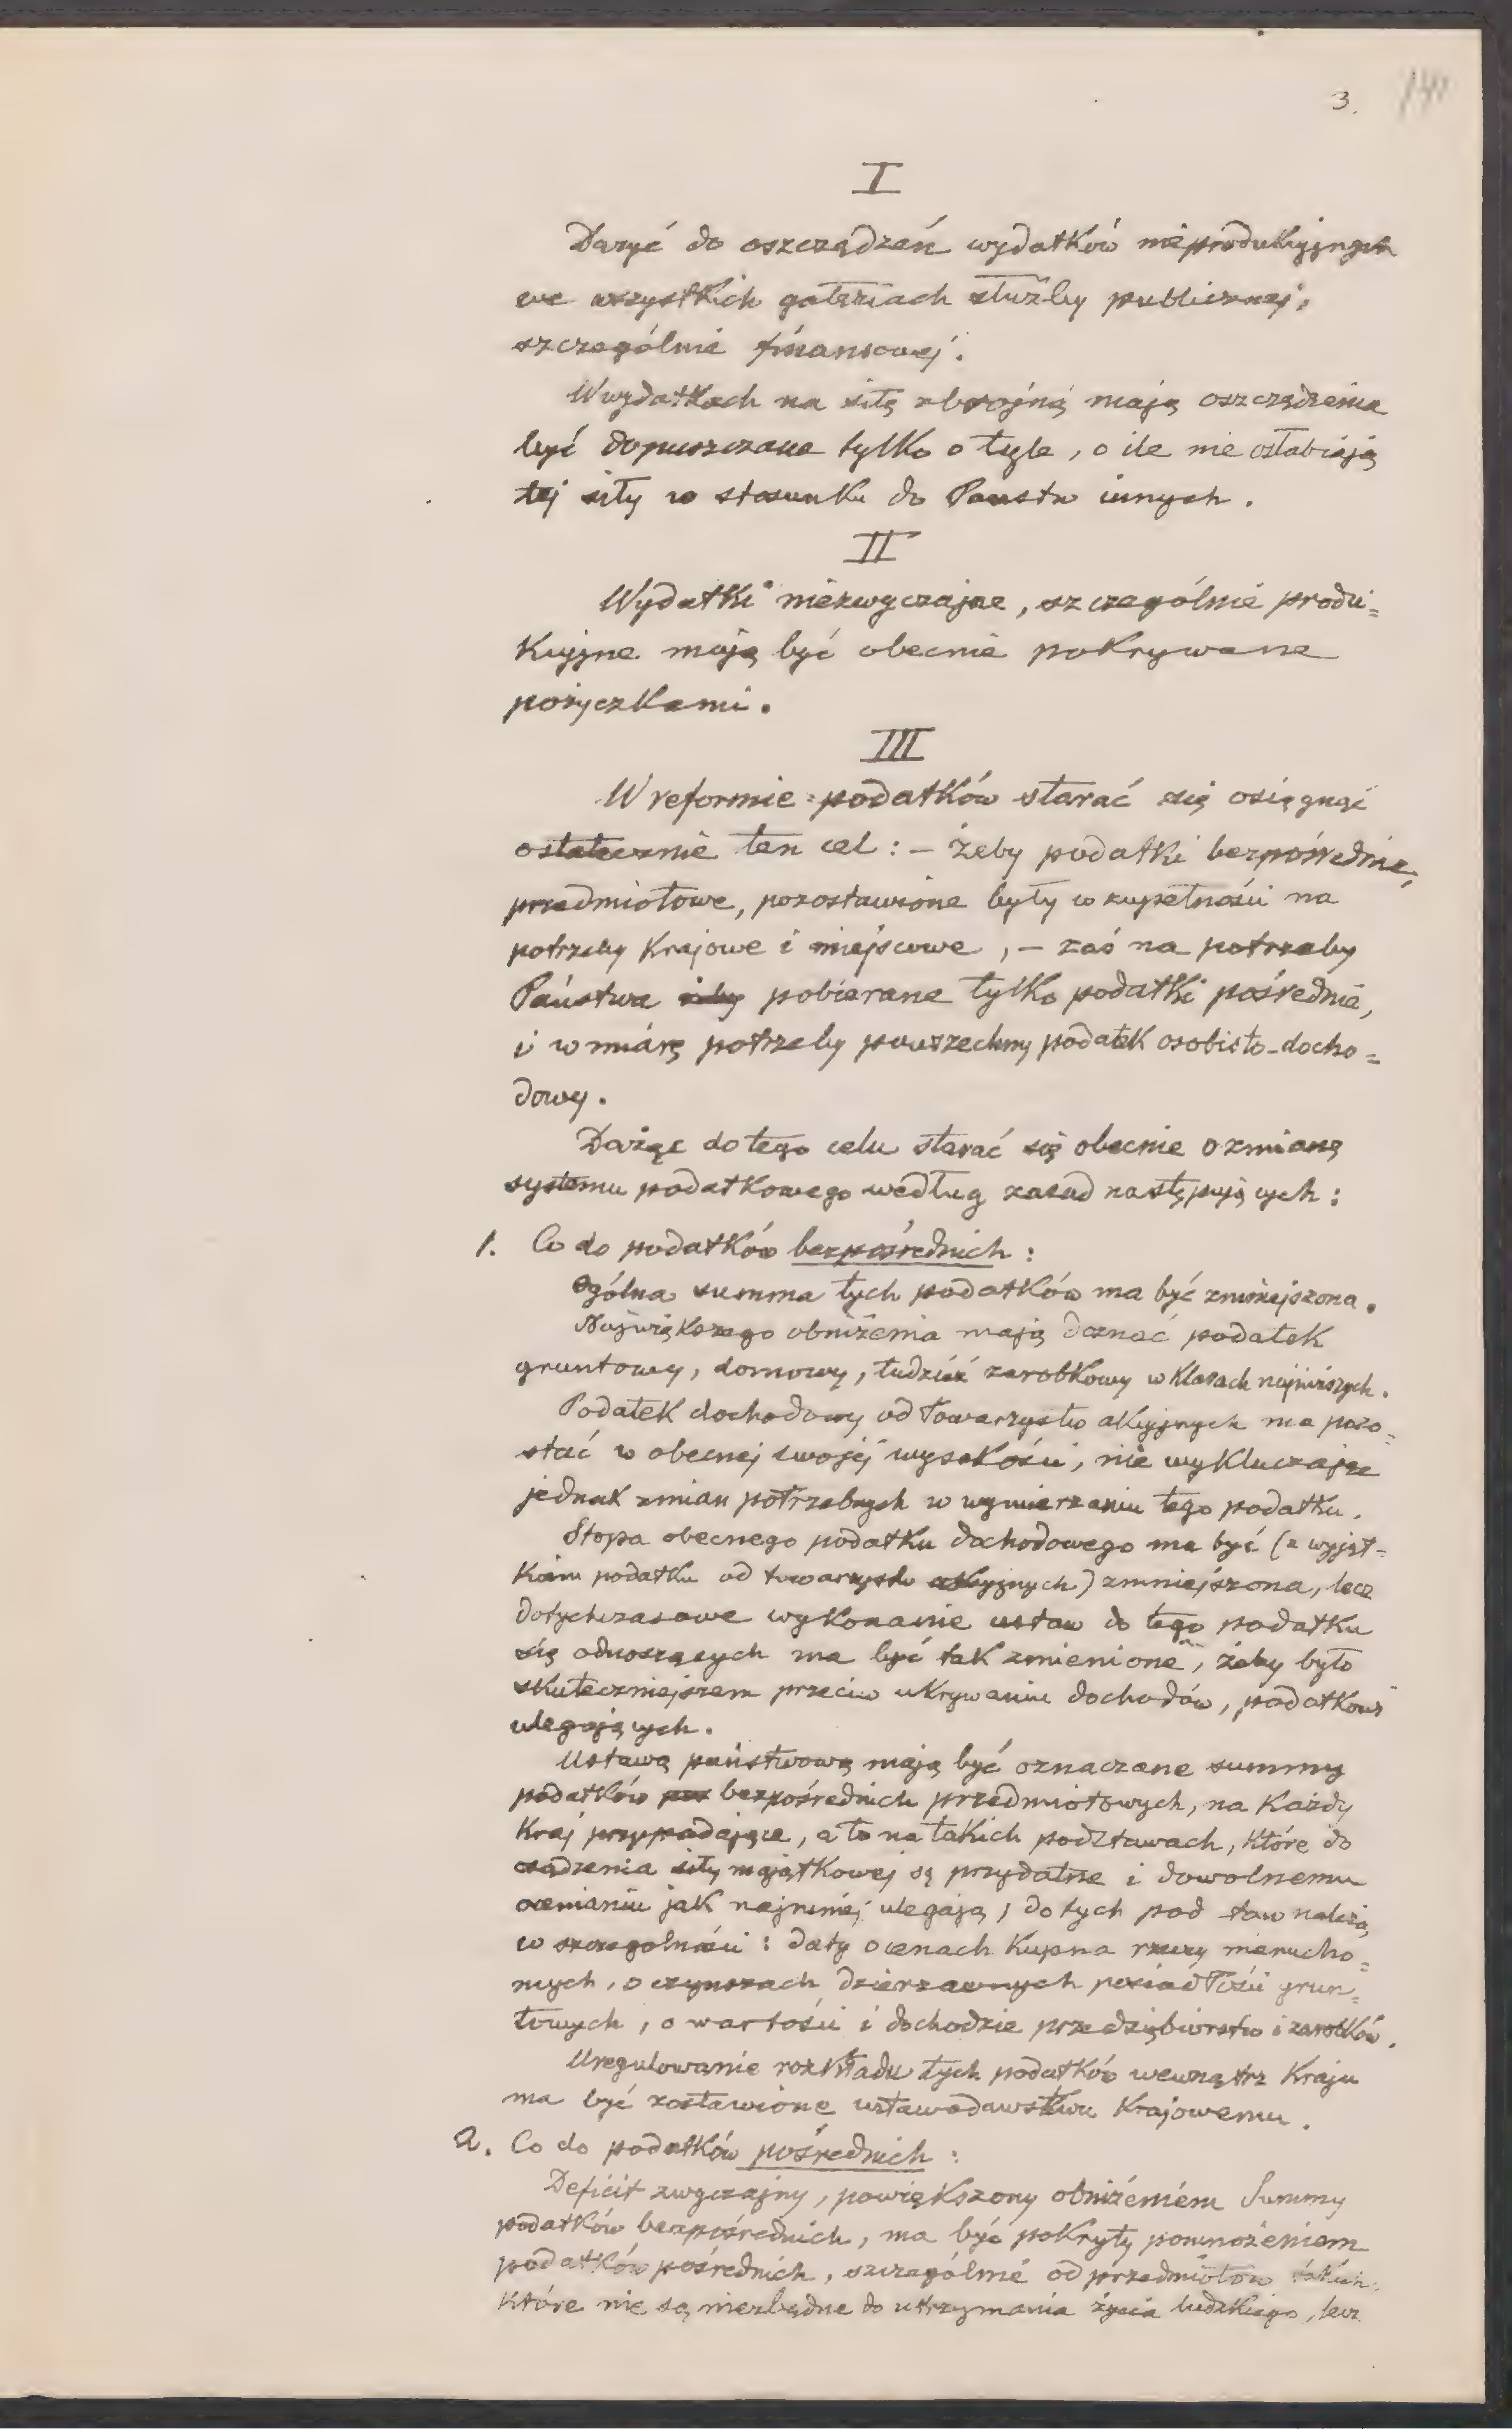 3.
I
Dążyć do oszczędzeń wydatków nieprodukcyjnych
we wszystkich gałęziach służby publicznej,
szczególnie finansowej.
W wydatkach na siłę zbrojną mają oszczędzenia
być dopuszczane tylko o tyle, o ile nie osłabiają
tej siły w stosunku do Państw innych.
II
Wydatki niezwyczajne, szczególnie produ=
kcyjne mają być obecnie pokrywane
pożyczkami.
III
W reformie podatków starać się osięgnąć
ostatecznie ten cel: – żeby podatki bezpośrednie,
przedmiotowe, pozostawione były w zupełności na
potrzeby Krajowe i miejscowe, – zaś na potrzeby
Państwa pobierane tylko podatki pośrednie,
i w miarę potrzeby powszechny podatek osobisto-docho=
dowy.
Dążąc do tego celu starać się obecnie o zmianę
systemu podatkowego według zasad następujących:
1. Co do podatków bezpośrednich:
Ogólna summa tych podatków ma być zmniejszona.
Największego obniżenia mają doznać podatek
gruntowy, domowy, tudzież zarobkowy w Klasach najniższych.
Podatek dochodowy od Towarzystw akcyjnych ma pozo=
stać w obecnej swojej wysokości, nie wykluczając
jednak zmian potrzebnych w wymierzaniu tego podatku.
Stopa obecnego podatku dochodowego ma być (z wyjąt=
kiem podatku od towarzystw akcyjnych) zmniejszona, lecz
dotychczasowe wykonanie ustaw do tego podatku
się odnoszących ma być tak zmienione, żeby było
skuteczniejszem przeciw ukrywaniu dochodów, podatkowi
ulegających.
Ustawą państwową mają być oznaczane summy
podatków bezpośrednich przedmiotowych, na Każdy
Kraj przypadające, a to na takich podstawach, Które do
osądzenia siły majątkowej są przydatne i dowolnemu
ocenianiu jak najmniej ulegają; do tych pod staw należą
w szczególności: daty o cenach Kupna rzeczy nierucho=
mych, o czynszach dzierżawnych posiadłości grun=
towych, o wartości i dochodzie przedsiębiorstw i zarobków.
Uregulowanie rozkładu tych podatków wewnątrz Kraju
ma być zostawione ustawodawstwu Krajowemu.
2. Co do podatków pośrednich:
Deficit zwyczajny, powiększony obniżeniem Summy
podatków bezpośrednich, ma być pokryty pomnożeniem
podatków pośrednich, szczególnie od przedmiotów takich,
Które nie są niezbędne do utrzymania życia ludzkiego, lecz